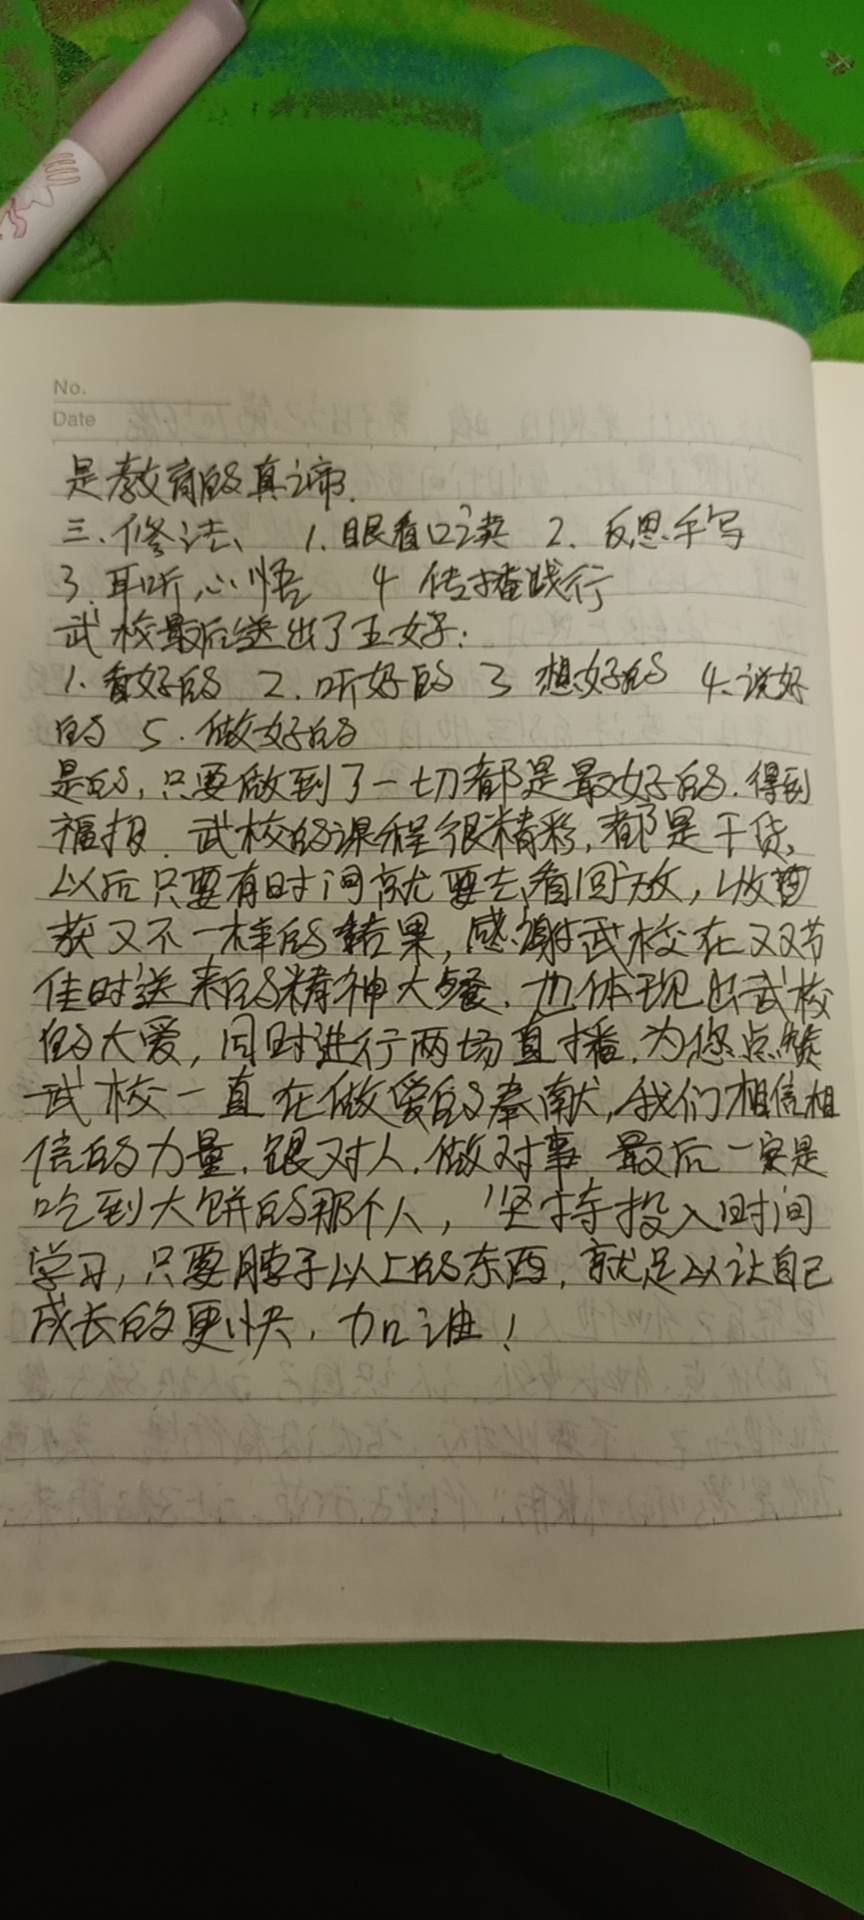 No.
Date
是教育的真谛.
三、修法、 1. 眼看口读 2. 反思手写
3. 耳听心悟 4 传播践行
武校最后送出了五好:
1. 看好的 2. 听好的 3 想好的 4、说好
的 5. 做好的
是的, 只要做到了一切都是最好的. 得到
福报. 武校的课程很精彩, 都是干货,
以后只要有时间就要去看回放, 收
获又不一样的结果, 感谢武校在双节
佳时送来的精神大餐. 也体现出武校
的大爱, 同时进行两场直播. 为您点赞
武校一直在做爱的奉献, 我们相信相
信的力量. 跟对人. 做对事 最后一定是
吃到大饼的那个人, 坚持投入时间
学习, 只要脖子以上的东西, 就足以让自己
成长的更快, 加油!